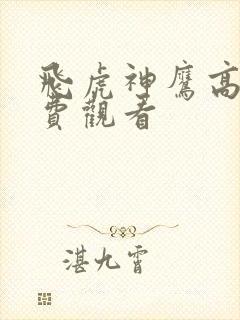 飛虎神鷹高
費觀看
湛九霄